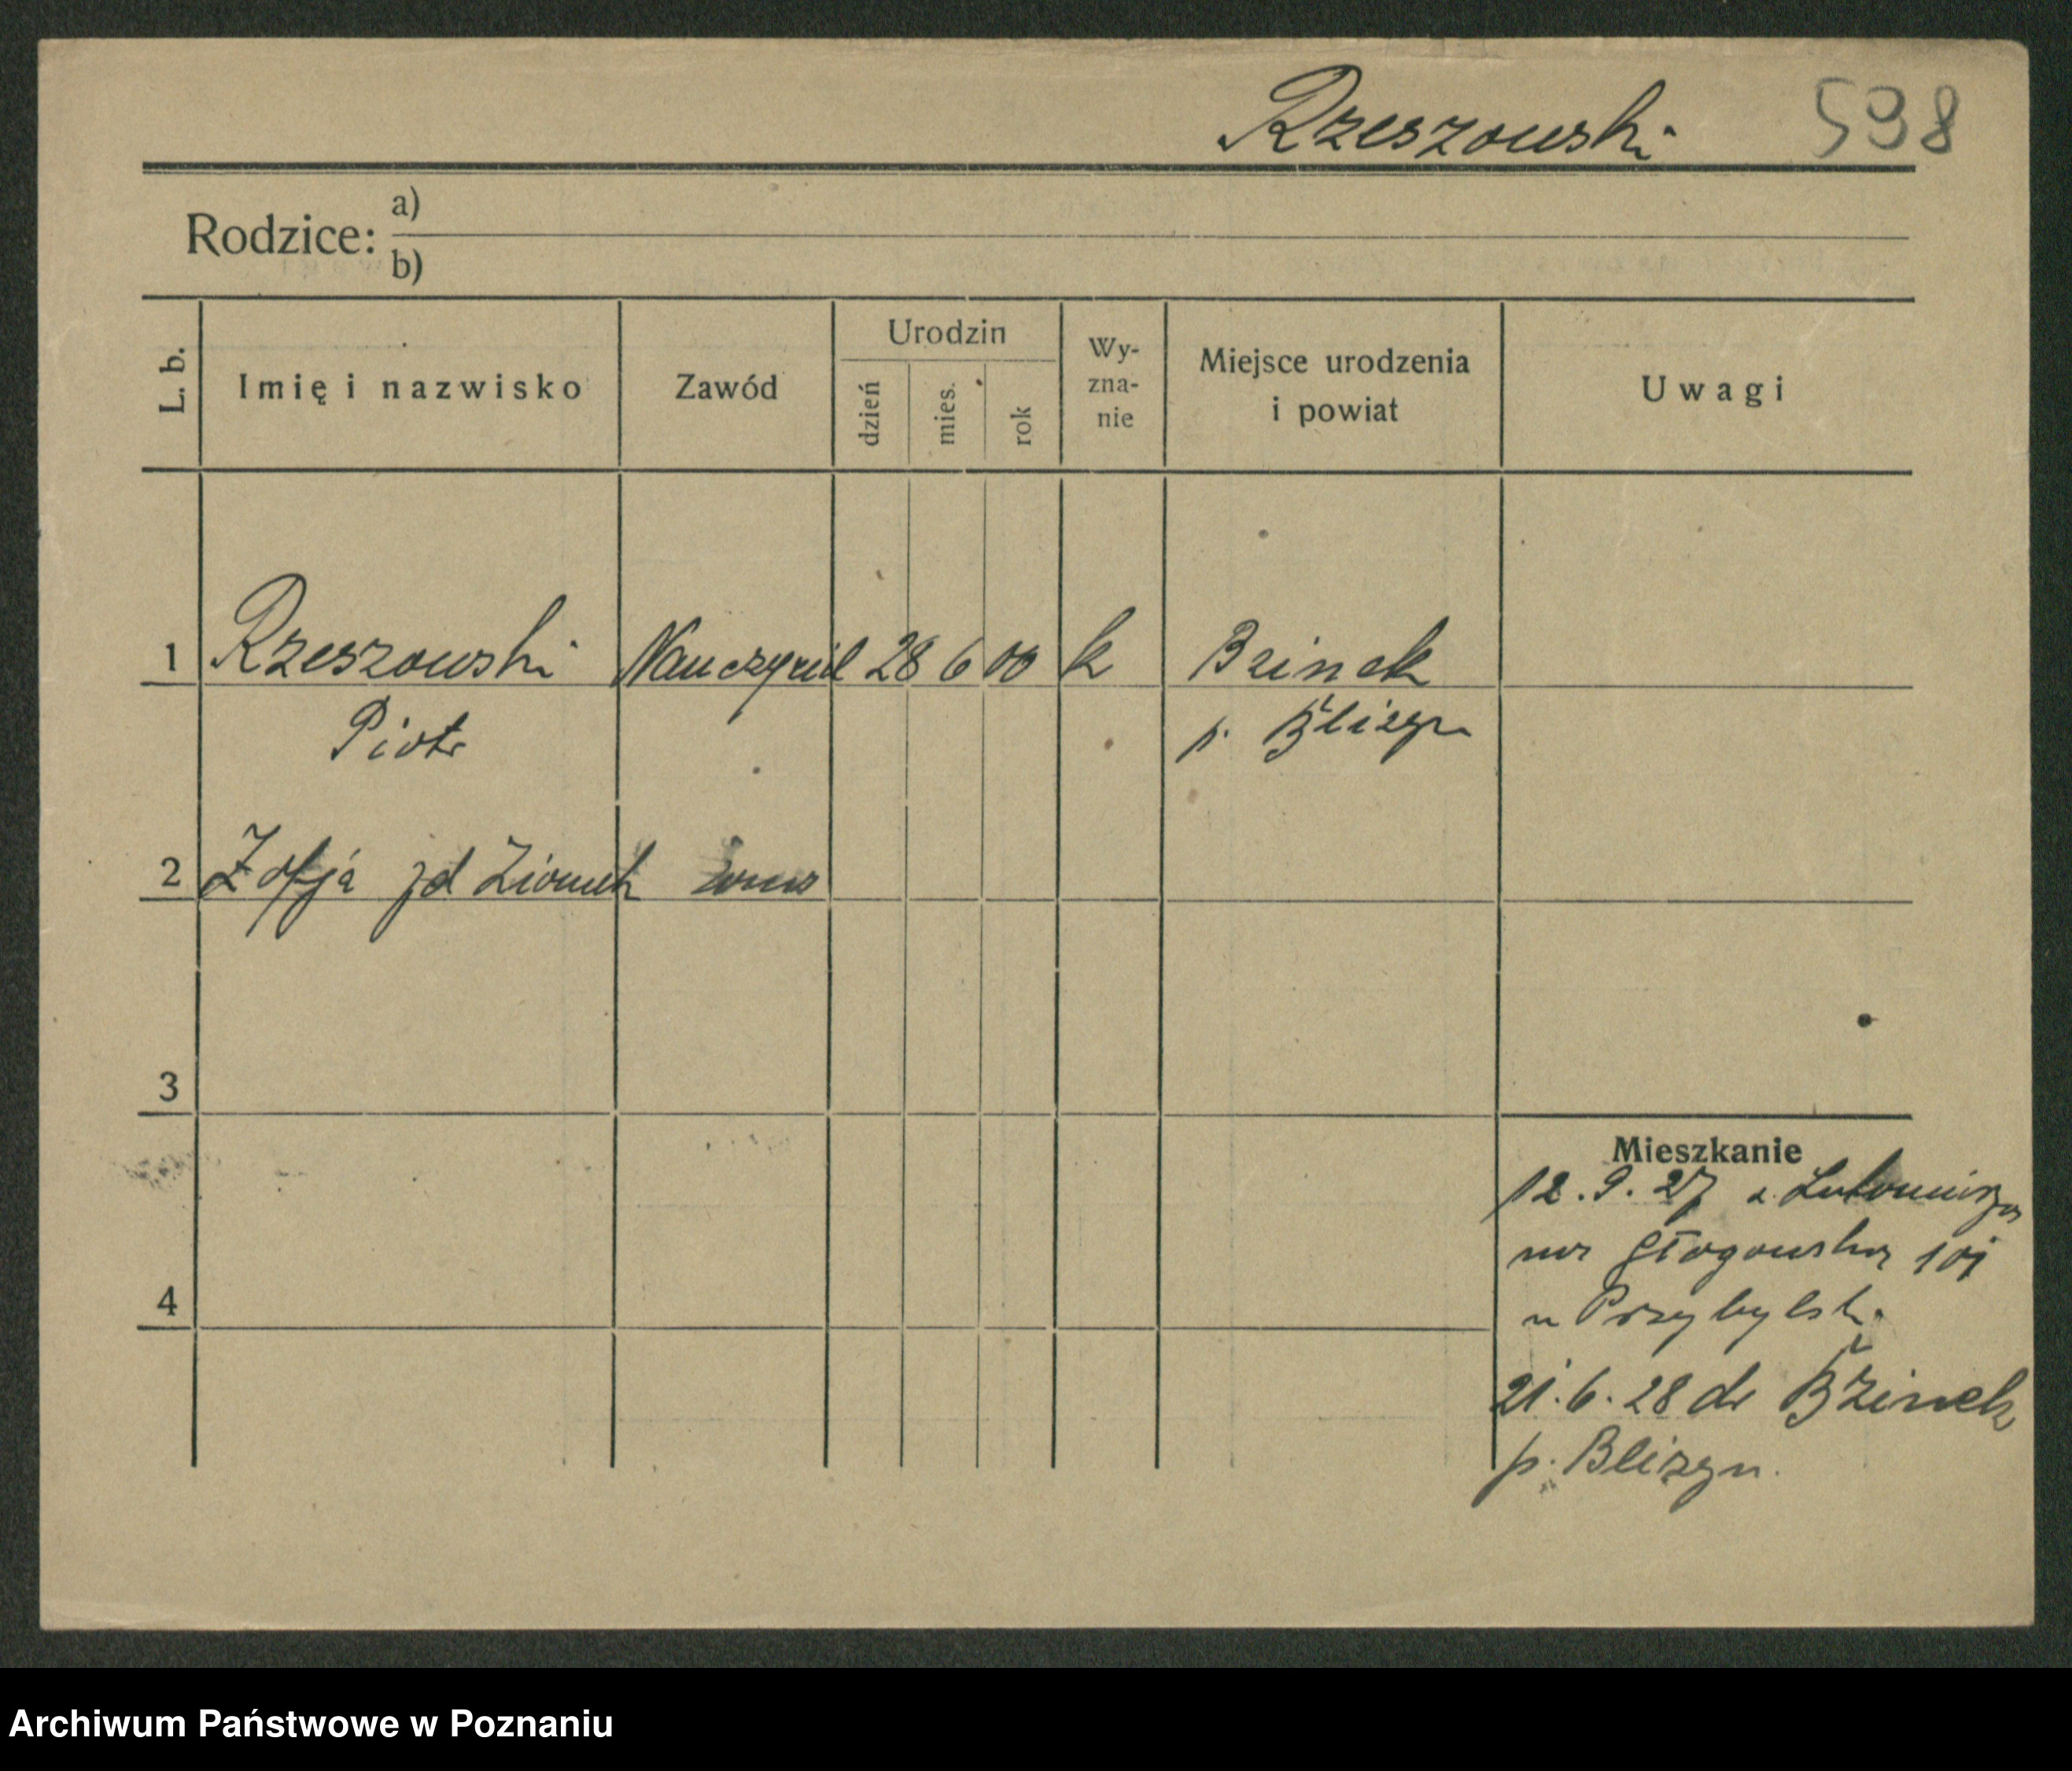 Rzeszowski 598
Rodzice: a)
b)
L. b.
Imię i nazwisko
Zawód
Urodzin
dzień
mies.
rok
Wy-
zna-
nie
Miejsce urodzenia
i powiat
Uwagi
1 Rzeszowski Nauczyciel 28 6 00 k Bzinek
Piotr p. Bliżyn
2 Zofja żona
3
Mieszkanie
12.9.27 z
na Głogowska 101
4
u Przybylsk.
21.6.28 do Bzinek
p. Bliżyn.
Archiwum Państwowe w Poznaniu